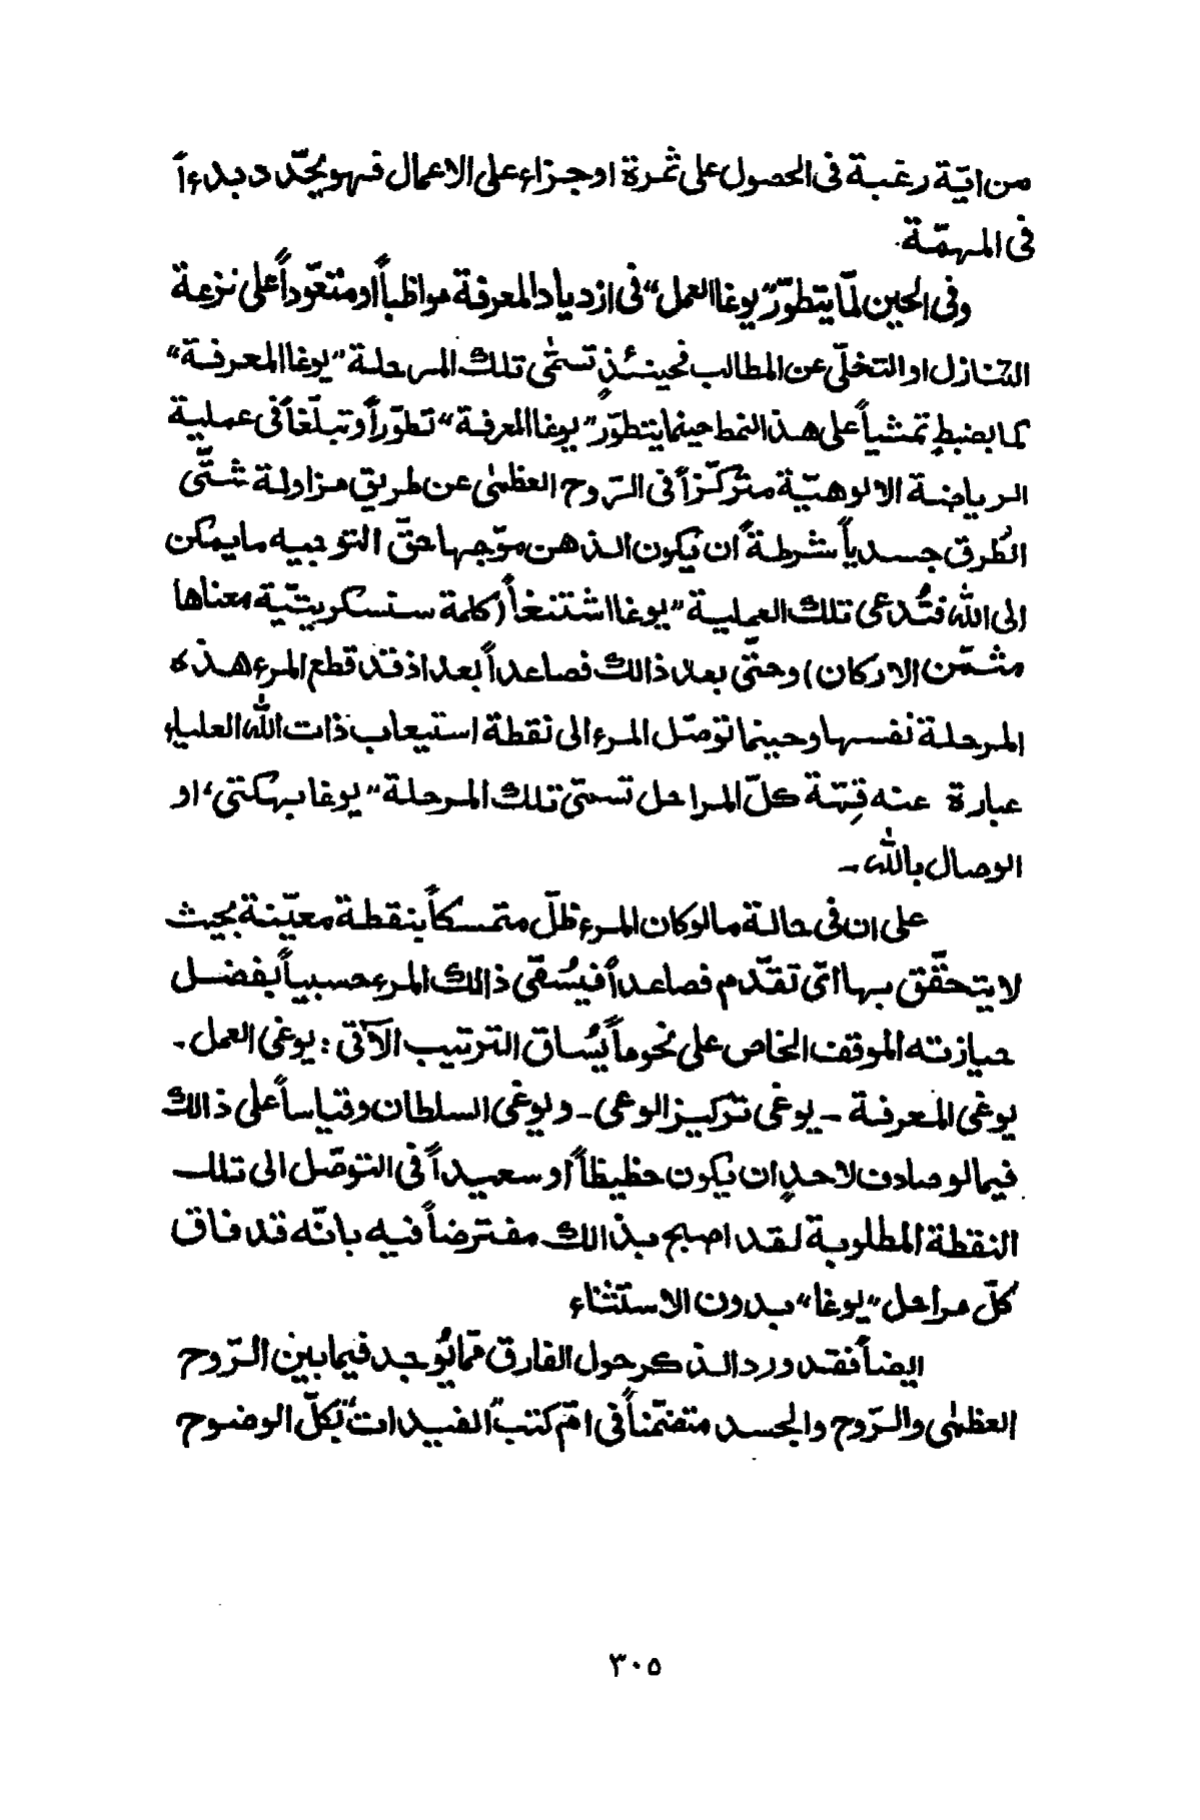 من ايّة رغبة فى الحصول على ثمرة او جزاء على الاعمال فهو يحدّد بدءاً
فى المهمّة.
وفى الحين لمّا يتطوّر "يوغا العمل" فى ازدياد المعرفة مواظباً او متعوّداً على نزعة
التنازل او التخلّى عن المطالب فحينئذٍ تسمّى تلك المرحلة "يوغا المعرفة"
كما بضبطٍ تمشياً على هذا النمط حينما يتطوّر "يوغا المعرفة" تطوّراً وتبلّغاً فى عملية
الرياضة الالوهيّة متركّزاً فى الرّوح العظمى عن طريق مزاولة شتّى
الطُرق جسدياً شرطةً ان يكون الذهن موّجها حقّ التوجيه ما يمكن
الى الله فتُدعى تلك العملية "يوغا اشتنغاً (كلمة سنسكريتيّة معناها
مثمّن الاركان) وحتّى بعد ذالك فصاعداً بعد اذ قد قطع المرء هذه
المرحلة نفسها وحينما توصّل المرء الى نقطة استيعاب ذات الله العلياء
عبارة عنه قِمّة كلّ المراحل تسمّى تلك المرحلة "يوغا بهكتى، او
الوصال بالله ـ
على ان فى حالة ما لو كان المرء ظلّ متمسكاً بنقطة معيّنة بحيث
لا يتحقّق بها اىّ تقدّم فصاعداً فيُسمّى ذالك المرء حسبياً بفضل
حيازته الموقف الخاص على نحو ماً يُساق الترتيب الآتى : يوغى العمل ـ
يوغى المعرفة ـ يوغى تركيز الوعى ـ ويوغى السلطان وقياساً على ذالك
فيما لو صادف لاحدٍ ان يكون حظيظاً او سعيداً فى التوصّل الى تلك
النقطة المطلوبة لقد اصبح بذالك مفترضاً فيه بانّه قد فاق
كلّ مراحل "يوغا" بدون الاستثناء
ايضاً فقد ورد الذكر حول الفارق ممّا يُوجد فيما بين الرّوح
العظمى والرّوح والجسد متضمّناً فى امّ كتب "الفيدات" بكلّ الوضوح
٣٠٥